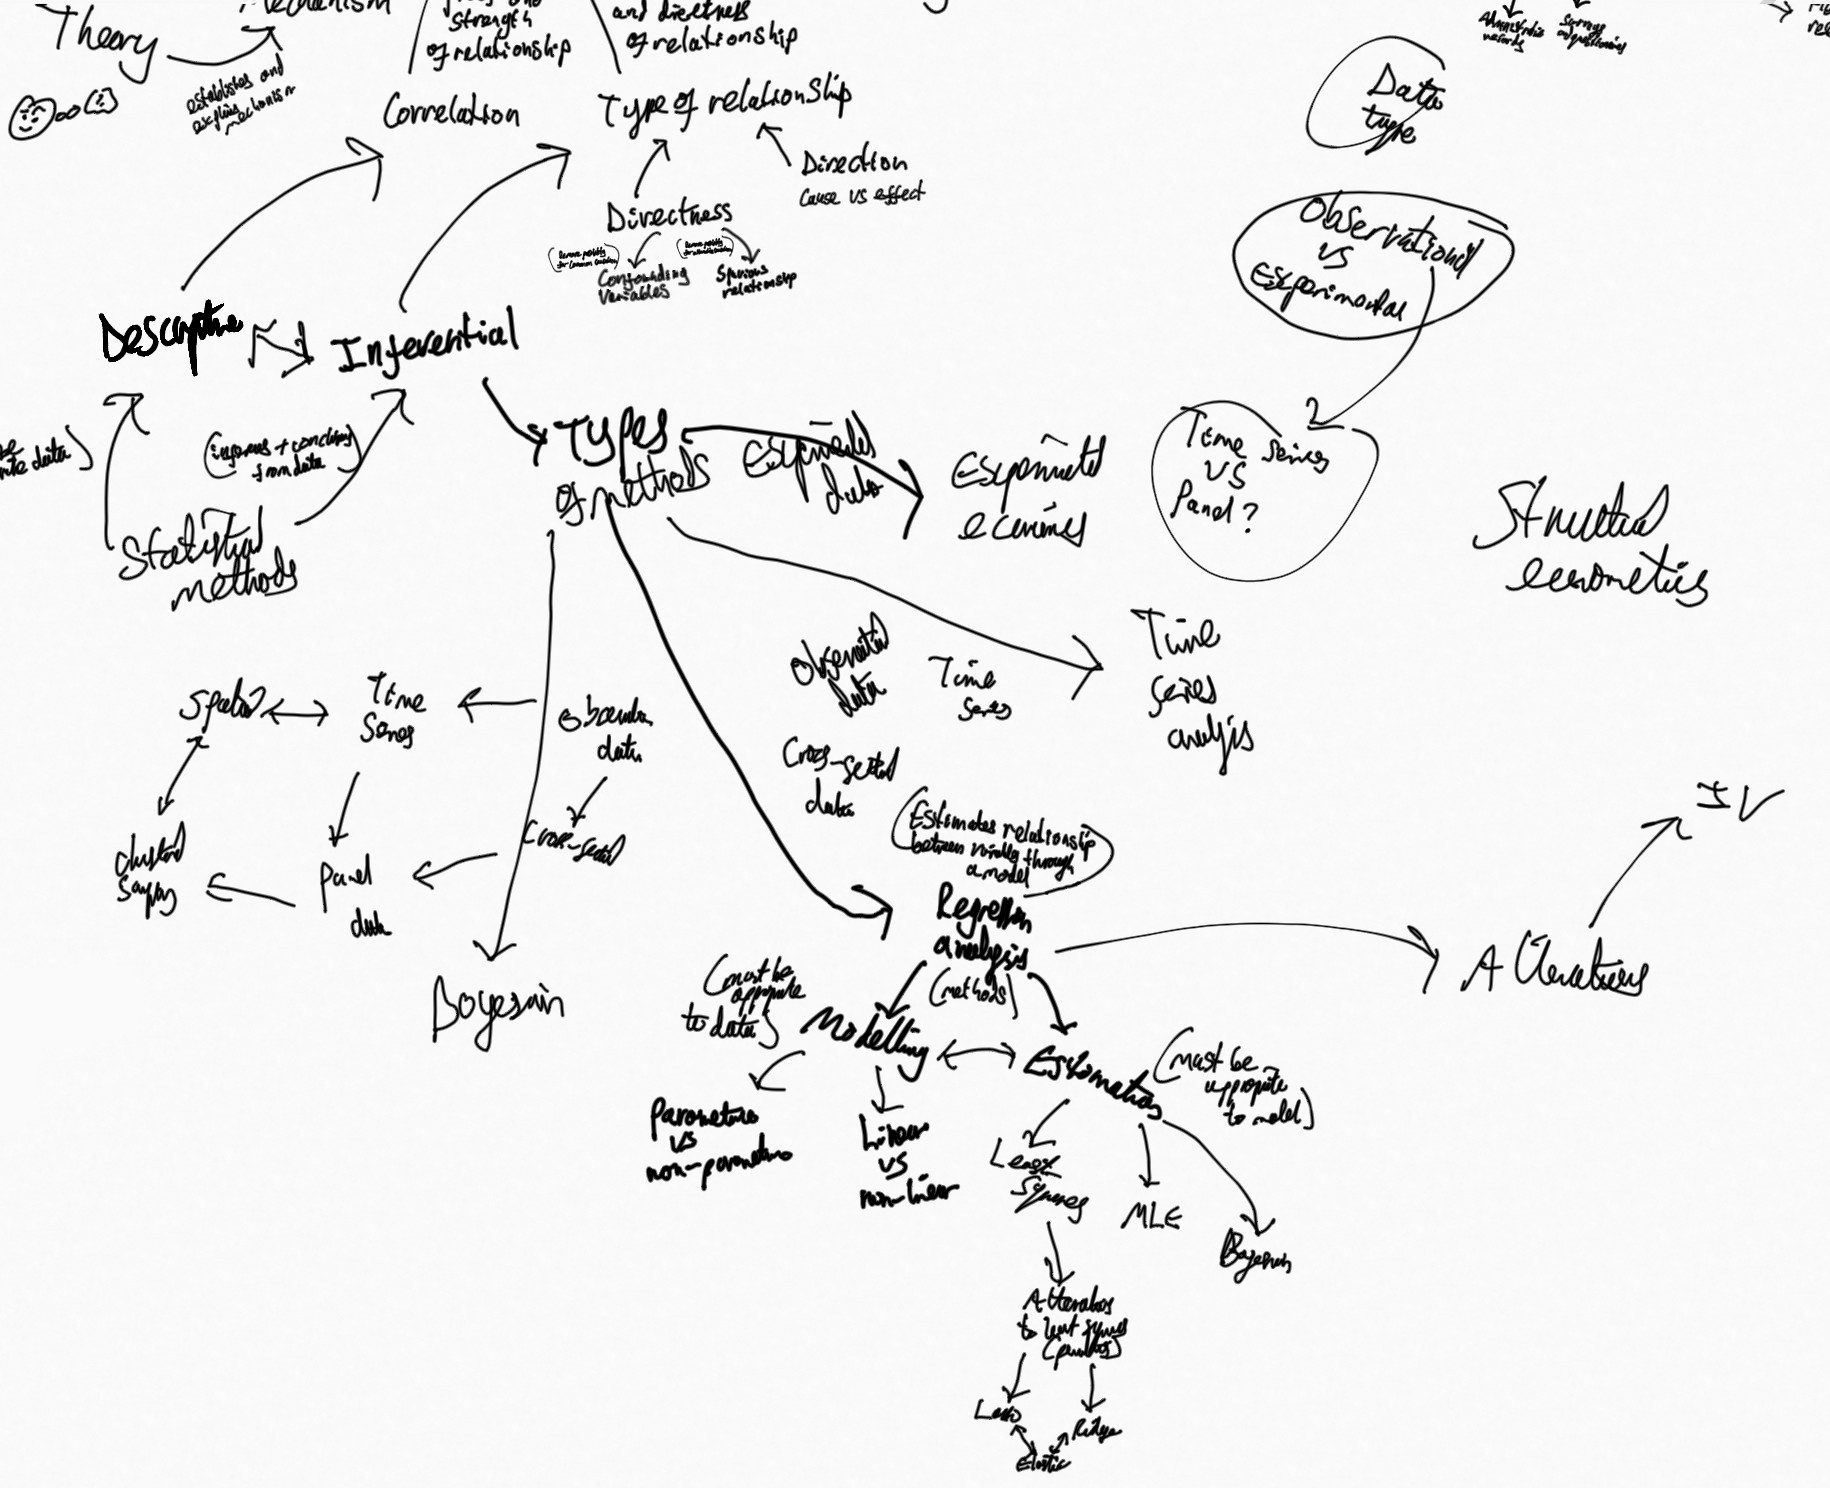 Theory
establishes and
mechanism
Strength
of relationship
and directness
of relationship
Correlation
Type of relationship
Direction
Cause vs effect
Directness
Confounding
Variables
Spurious
relationship
Data
type
Observational
vs
Experimental
Time series
vs
Panel?
Descriptive
Inferential
from data
Statistical
methods
Types
of methods
Experimental
data
Structural
econometrics
Observational
data
Time
series
Time
series
analysis
Cross-sectional
data
Spatial
Time
Series
data
Cross-sectional
Panel
data
Bayesian
(Estimates relationship
between variables through
a model
Regression
analysis
(methods)
Alternatives
IV
(must be
appropriate
to data)
Modelling
Estimation
(must be
appropriate
to model)
Parametric
vs
non-parametric
Linear
vs
non-linear
Least
Squares
MLE
Bayesian
Alternatives
to least squares
Lasso
Ridge
Elastic